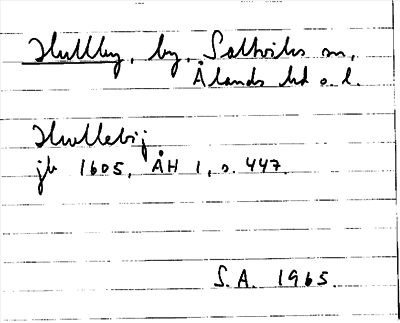 Hullby, by, Saltviks sn,
Ålands hd o. l.
Hullebij
jb 1605, ÅH 1, s. 447.
S.A. 1965.